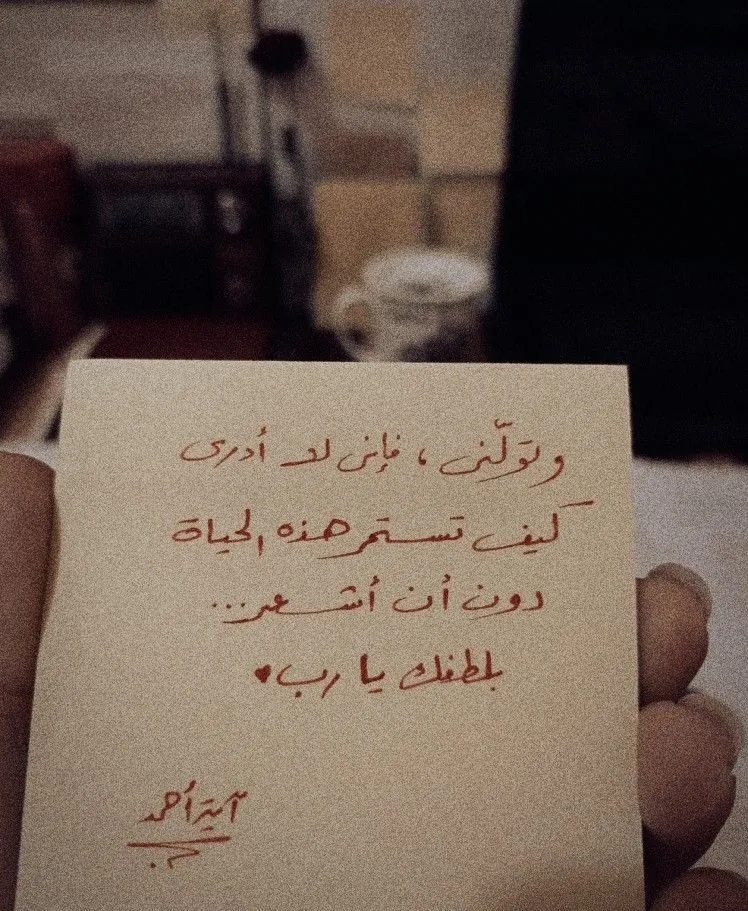 وتولّنى ، فإنى لا أدرى
كيف تستمر هذه الحياة
دون أن أشعر...
بلطفك يا رب ♥
آية أحمد